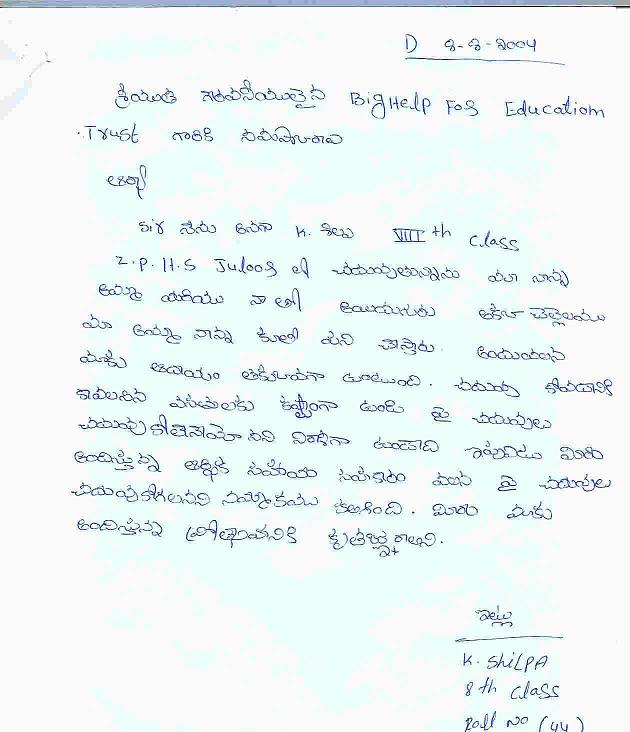 D 8-8-2004
శ్రీయుత గౌరవనీయులైన Big Help For Education
Trust గారికి నమస్కారాలు
ఆర్యా
Sir నేను అనగా K. శిల్ప VIII th Class
Z.P.H.S Juloor లో చదువుతున్నాను మా నాన్న
అమ్మ మరియు నా తో అయిదుగురు అక్కా చెల్లెలము
మా అమ్మ నాన్న కూలీ పని చేస్తారు. అందువలన
మాకు ఆదాయం తక్కువగా ఉంటుంది. చదువు కోవడానికి
కావలసిన వసతులకు కష్టంగా ఉండి పై చదువులు
చదువుకోలేనేమోనని నిరాశగా ఉండేది ఇప్పుడు మీరు
అందిస్తున్న ఆర్థిక సహాయ సహకారం వలన పై చదువులు
చదువుకోగలనని నమ్మకము కలిగింది. మీరు మాకు
అందిస్తున్న ప్రోత్సాహానికి కృతజ్ఞురాలిని.
ఇట్లు
K. ShiLPA
8 th Class
Roll No (44)